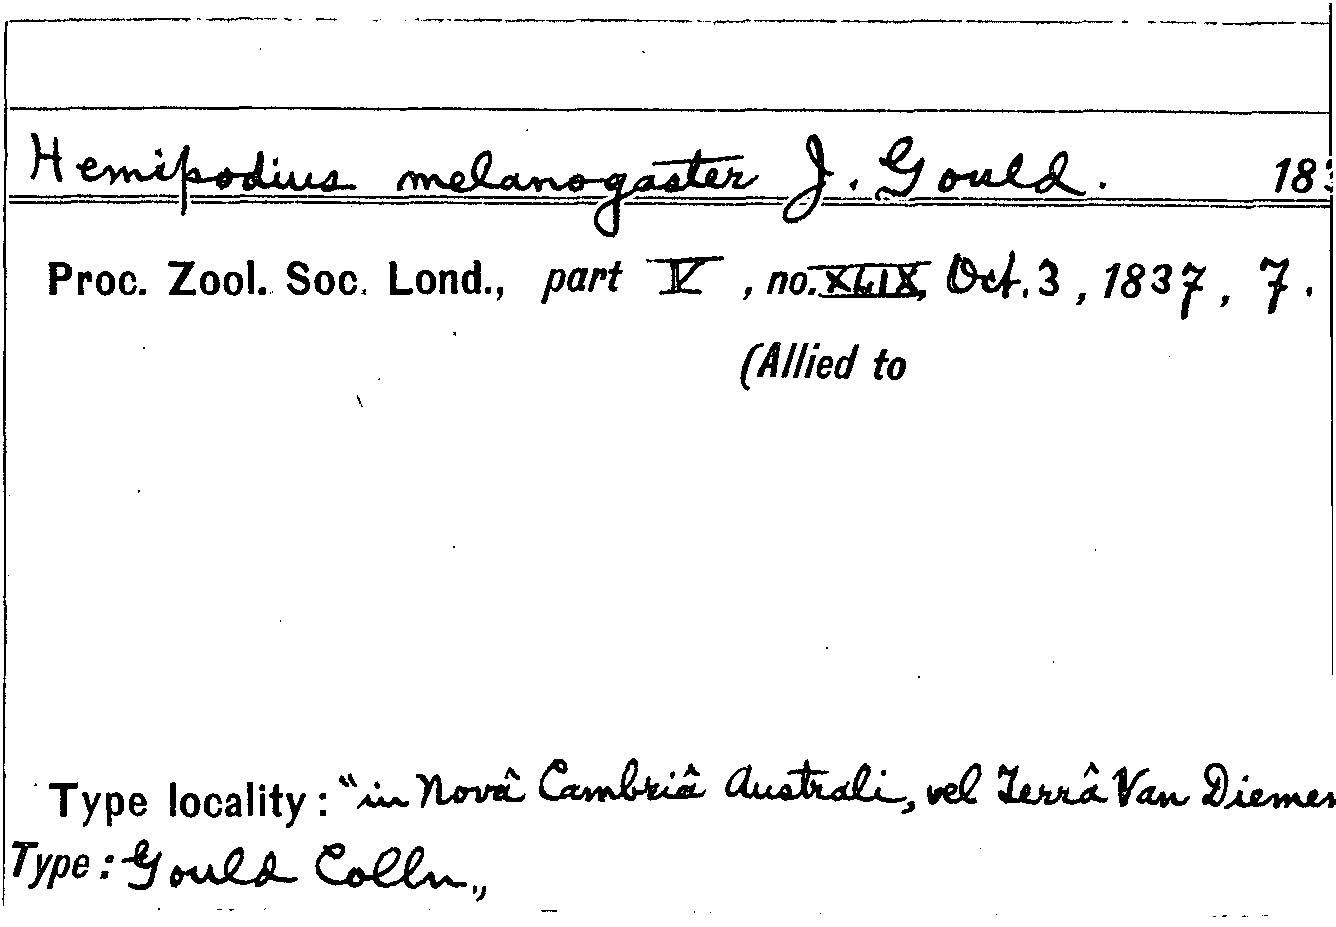 Hemipodius melanogaster J. Gould. 183
Proc. Zool. Soc. Lond., part V, no. XLIX, Oct. 3, 1837, 7.
(Allied to
Type locality: "in Novâ Cambriâ Australi, vel Terrâ Van Diemen
Type: Gould Colln.,